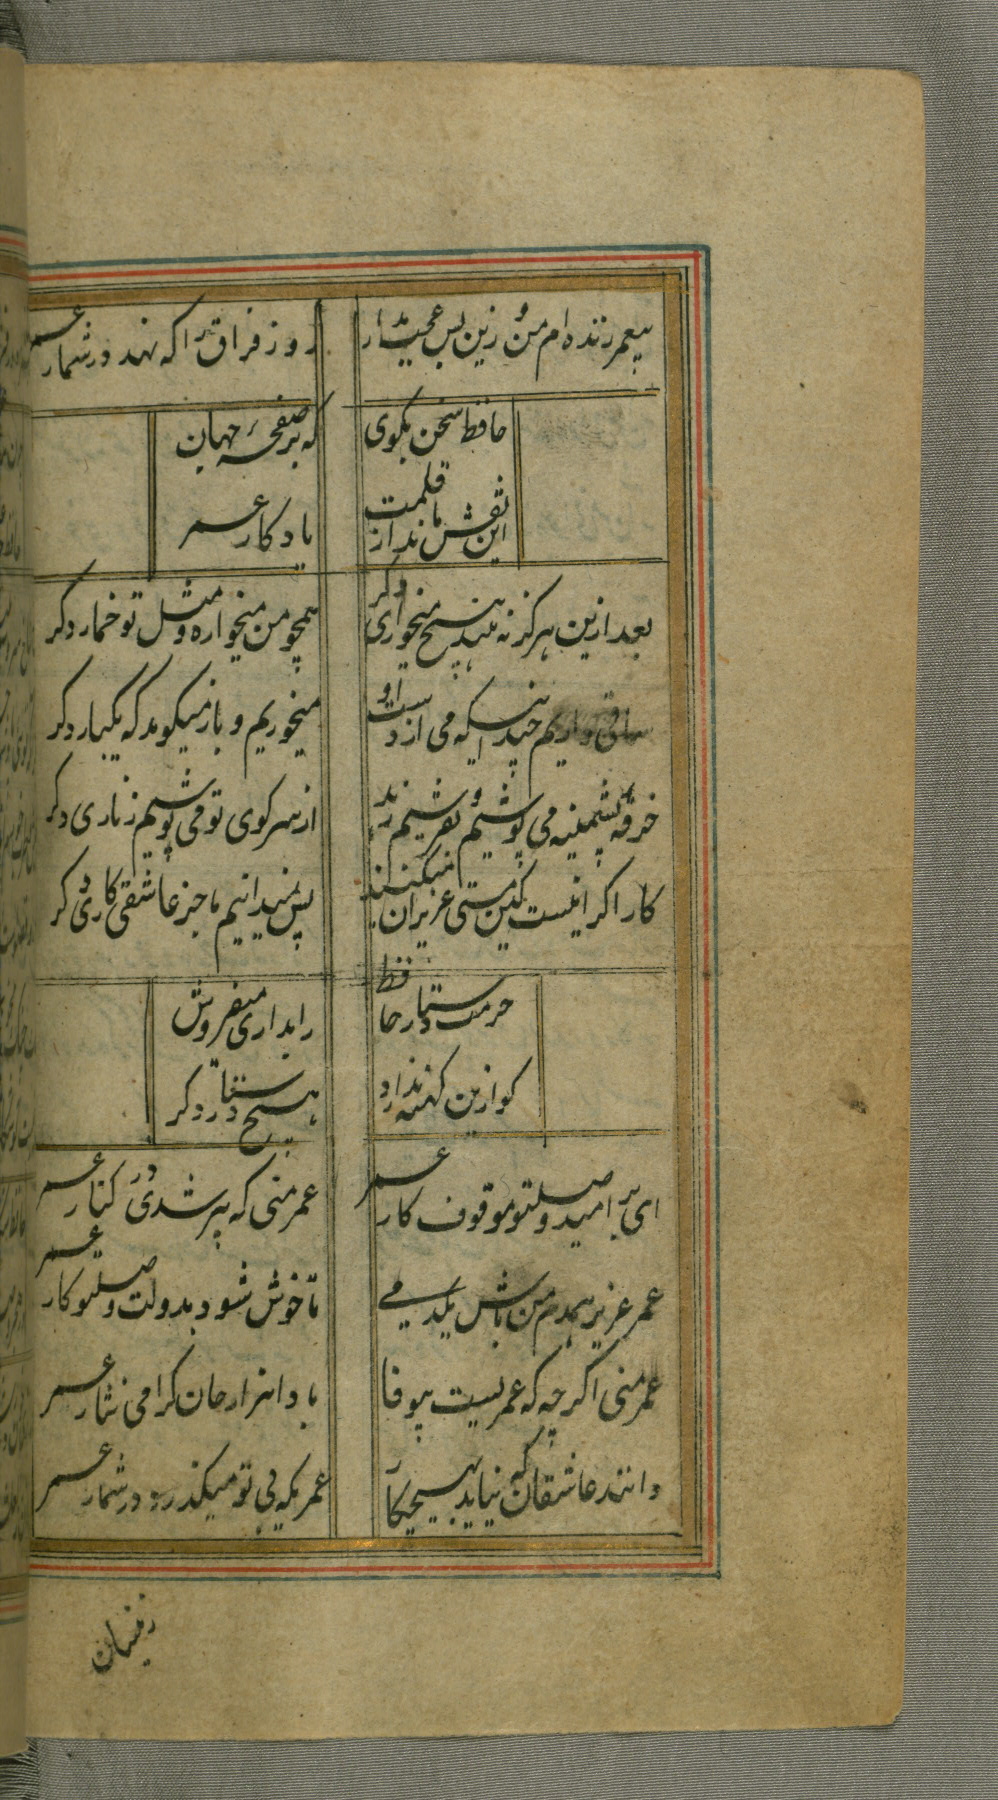 بیعمر زنده ام من و زین بس عجب مدار
روز فراق را که نهد در شمار عمر
حافظ سخن بکوی
که بر صفحه جهان
این نقش ماند از قلمت
یادکار عمر
بعد ازین هرکز نه بیند هیچ میخواری دکر
همچو من میخواره و مثل تو خمار دکر
ساقی داریم چندانیکه می از دست او
میخوریم و باز میکوید که یکبار دکر
خرقه پشمینه می پوشیم و بفریشیم زند
از سر کوی تو می پوشیم زناری دکر
کار اکر اینست کین مستی عزیزان میکنند
پس نمیدانیم ما جز عاشقی کاری دکر
حرمت دستار حافظ
را بداری میفروش
کو ازین کهنه ندارد
هیچ دستاری دکر
ای بر امید وصلتو موقوف کار عمر
عمر منی که پر شدی در کنار عمر
عمر عزیز همدم من باش یکدمی
تا خوش شود بدولت وصلتو کار عمر
عمر منی اکرچه که عمریست بیوفا
بادا هزار جان کرامی نثار عمر
دانند عاشقان که نیاید بهیچ کار
عمریکه بی تو میکذرد در شمار عمر
زینسان